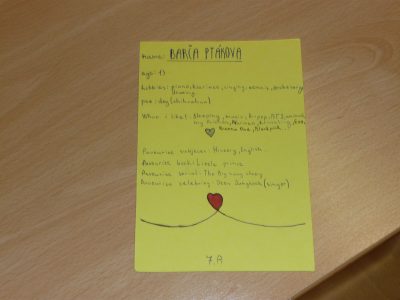 name: BARČA PTÁKOVA
age: 13
hobbies: piano, clarinet, singing, tennis,
drawing
pet: dog (chihuahua)
What i like: Sleeping, music, K-pop, BTS,
my friends,
Favourite subject: History, English
Favourite book: Little prince
Favourite serial: The Big bang theory
Favourite celebrity: Jeon Jungkook (singer)
7.A